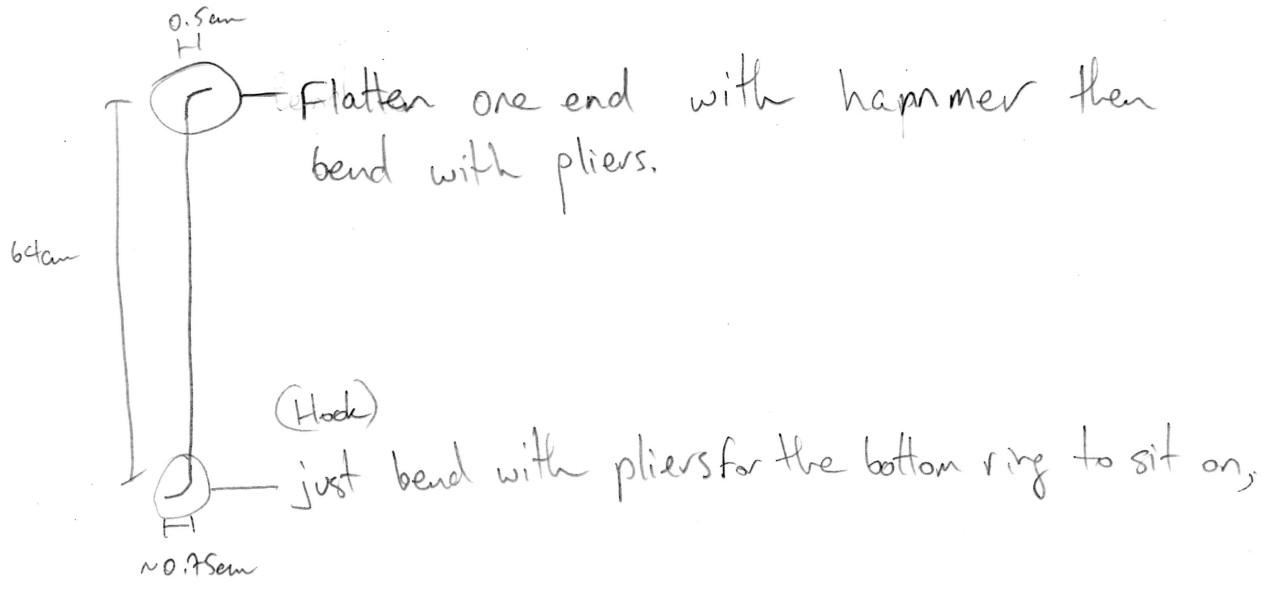 0.5cm
Flatten one end with hammer then
bend with pliers.
64cm
(Hook)
just bend with pliers for the bottom ring to sit on,
~0.75cm